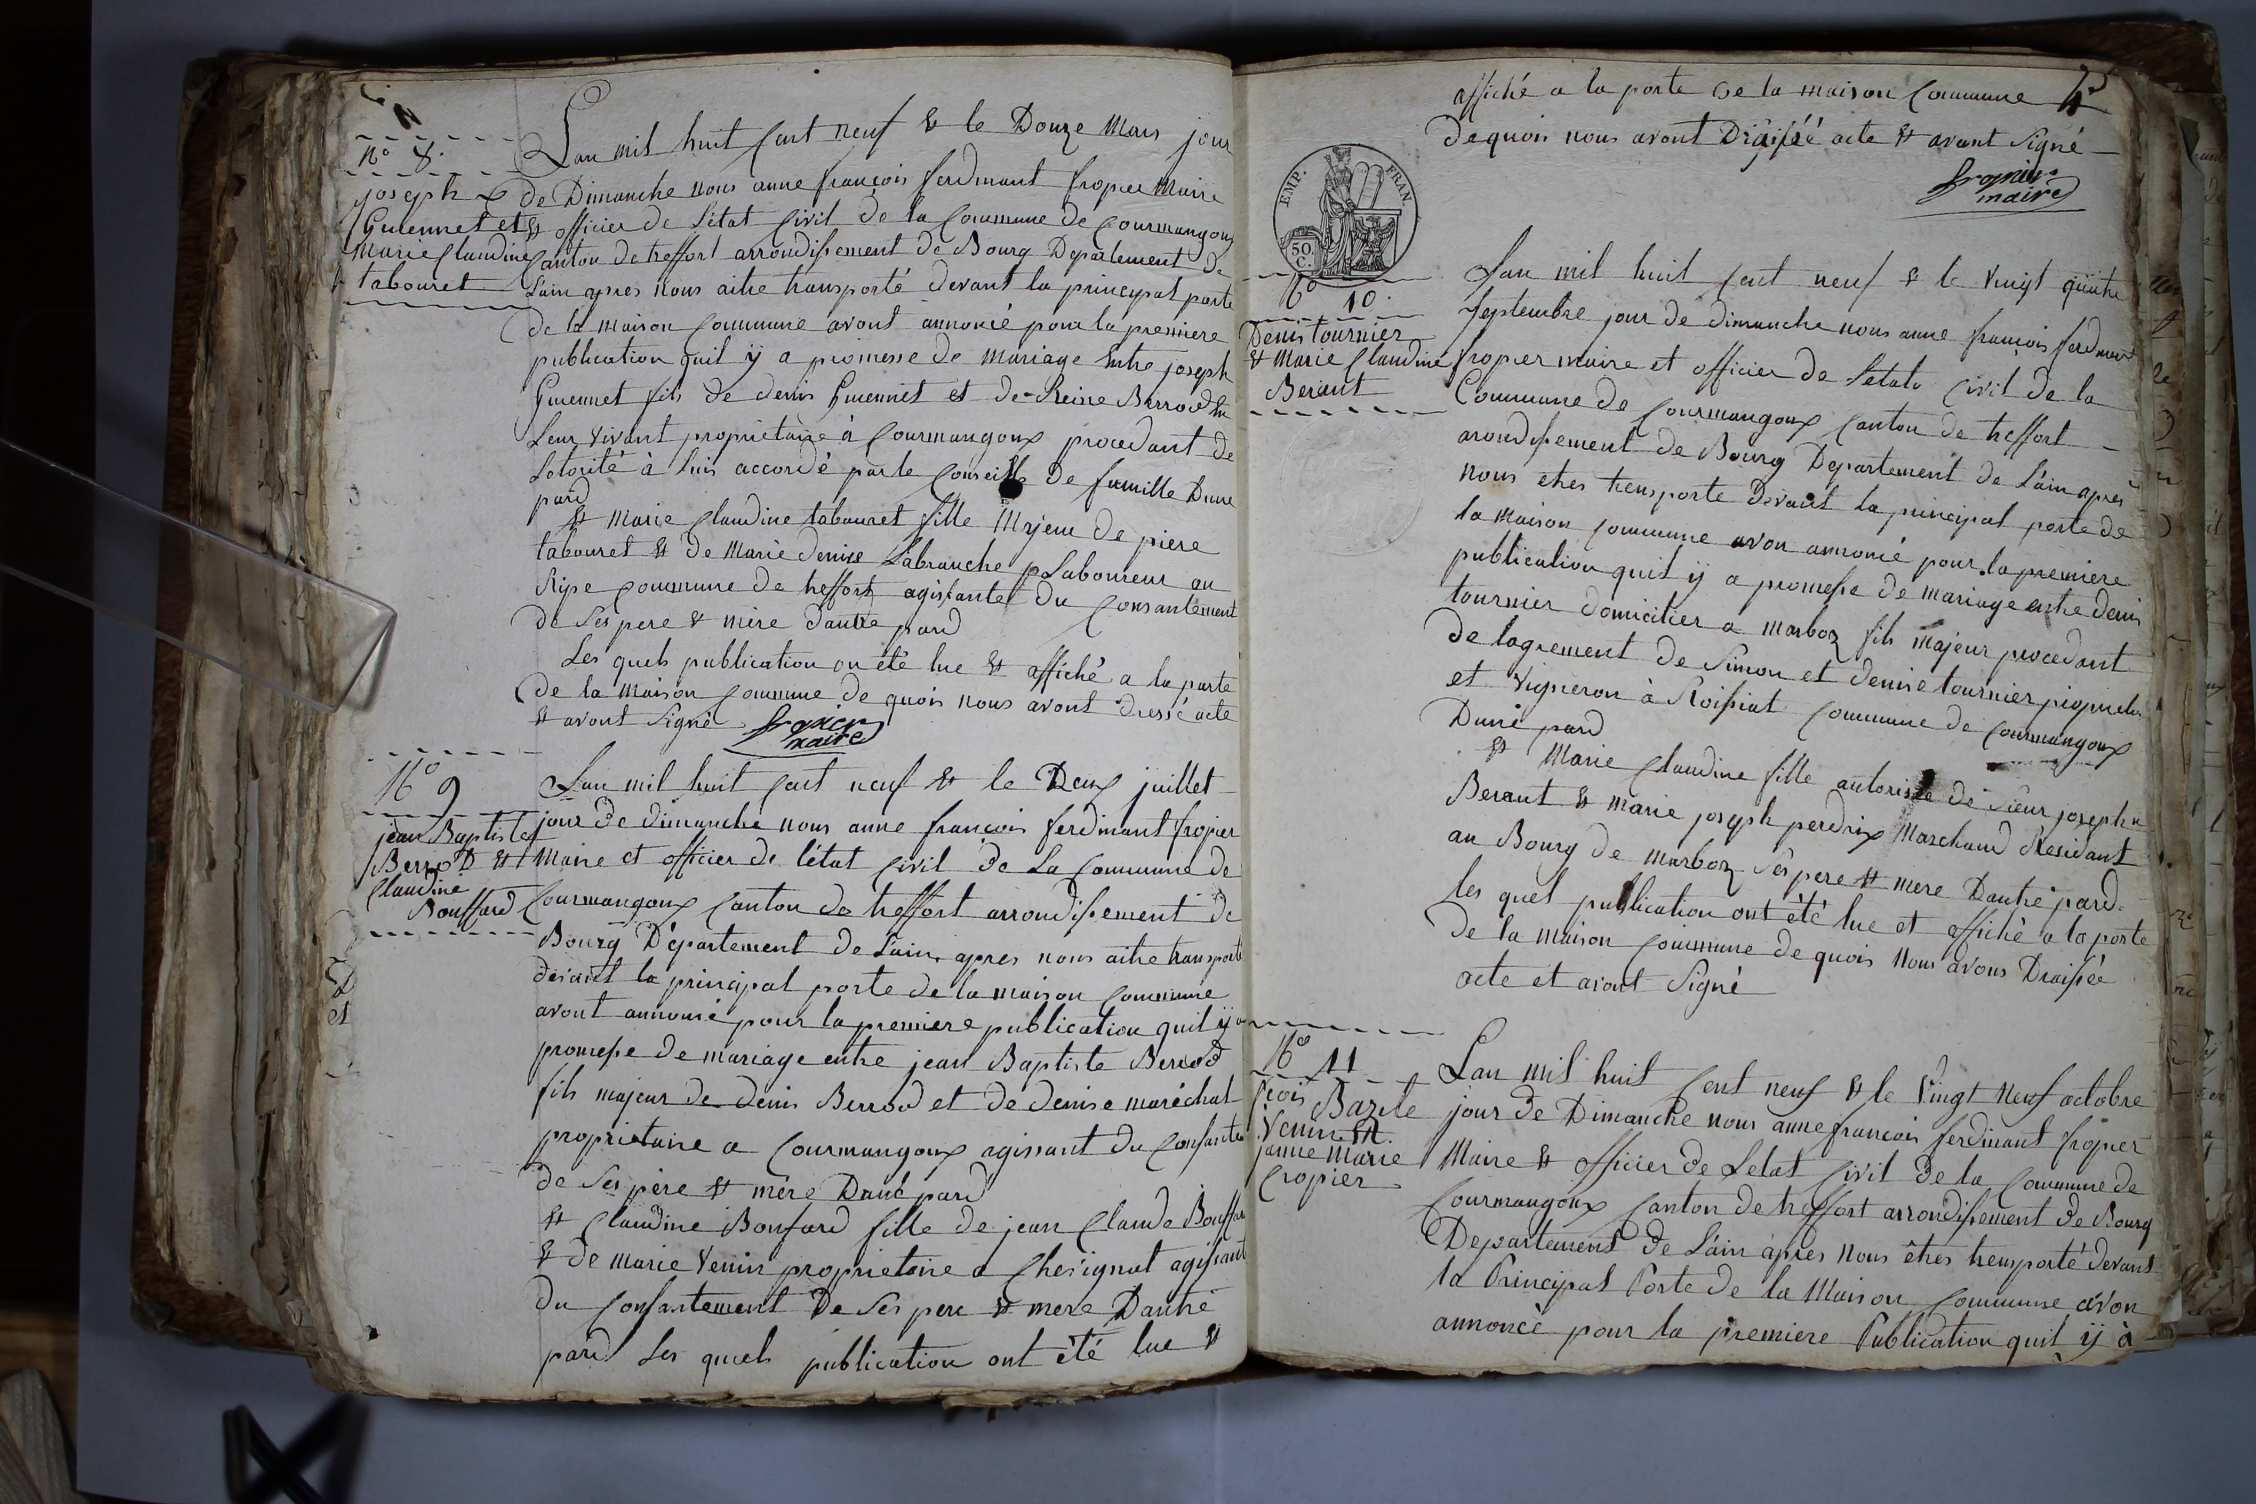 nº 8.
joseph
Guiennet et
Marie Claudine
tabouret
Lan mil huit Cent neuf & le Douze Mars jour
de Dimanche nous anne françois ferdinant fropier Maire
& officier de L'état Civil de la Commune de Courmangoux
Canton de treffort arrondissement de Bourg Departement de
Lain apres nous aitre transporté devant la principal porte
de la maison Commune avont annoncé pour la premiere
publication quil ÿ a promesse de Mariage Entre joseph
Guiennet fils de denis Guiennet et de Reine Berrod
Leur vivant proprietaire à Courmangoux procedant de
Lotorité à luis accordé par le Conseille de famille Dune
pard
& Marie Claudine tabouret fille Majeur de piere
tabouret & de Marie denise Labranche Laboureur au
Ripe Commune de treffort agissante du Consantement
de Ses pere & mère dautre pard
Les quels publication on été lue & affiché a la parte
de la maison Commune de quois nous avont dressé acte
& avont Signé fropier
maire
Nº 9
jean Baptiste
Berrod &
Claudine
Bouffard
Lan mil huit Cent neuf & le Deux juillet
jour de dimanche nous anne francois ferdinant fropier
Maire et officier de l'état Civil de La Commune de
Courmangoux Canton de treffort arrondissement de
Bourg Département de Lain apres nous aitre transporté
devant la principal porte de la maison Commune
avont annoncé pour la premiere publication quil ÿ a
promesse de mariage entre jean Baptiste Berrod
fils majeur de denis Berrod et de denise maréchal
proprietaire a Courmangoux agissant du Consante
de Ses père & mère Dune pard
& Claudine Boufard fille de jean Claude Bouffar
& de marie Venin proprietaire a Chevignat agissant
du Consantement de Ses pere & mere Dautre
pard Les quels publication ont été lue &
affiché a la porte de la maison Commune
de quois nous avont Draissée acte & avont Signé
fropier
maire
EMP. FRAN.
50 C.
Nº 10.
Denis tournier
& Marie Claudine
Beraut
Lan mil huit Cent neuf & le vingt quatre
Septembre jour de dimanche nous anne françois ferdinant
fropier maire et officier de Létat Civil de la
Commune de Courmangoux Canton de treffort
arondissement de Bourg Departement de Lain apres
nous etres transporte devant la principal porte de
la maison Commune avon annoncé pour la premiere
publication quil ÿ a promesse de mariage entre denis
tournier domicilier a marboz fils majeur procedant
de lagrement de Simon et denise tournier
et vigneron à Roissiat Commune de Courmangoux
Dune pard
& Marie Claudine fille autorisée de Sieur joseph
Beraut & marie joseph perdrix Marchand Residant
au Bourg de marboz Ses pere & mere Dautre pard
les quel publication ont été lue et affiché a la porte
de la maison Commune de quois Nous avons Draissée
acte et avont Signé
Nº 11
fcois Bazile
Venin &
janne Marie
Cropier
Lan mil huit Cent neuf & le Vingt Neuf octobre
jour de Dimanche nous anne francois ferdinant fropier
Maire & officier de Letat Civil de la Commune de
Courmangoux Canton de treffort arrondissement de Bourg
Departement de Lain après nous êtres transporté devant
la Principal Porte de la Maison Commune avon
annoncé pour la premiere Publication quil ÿ à